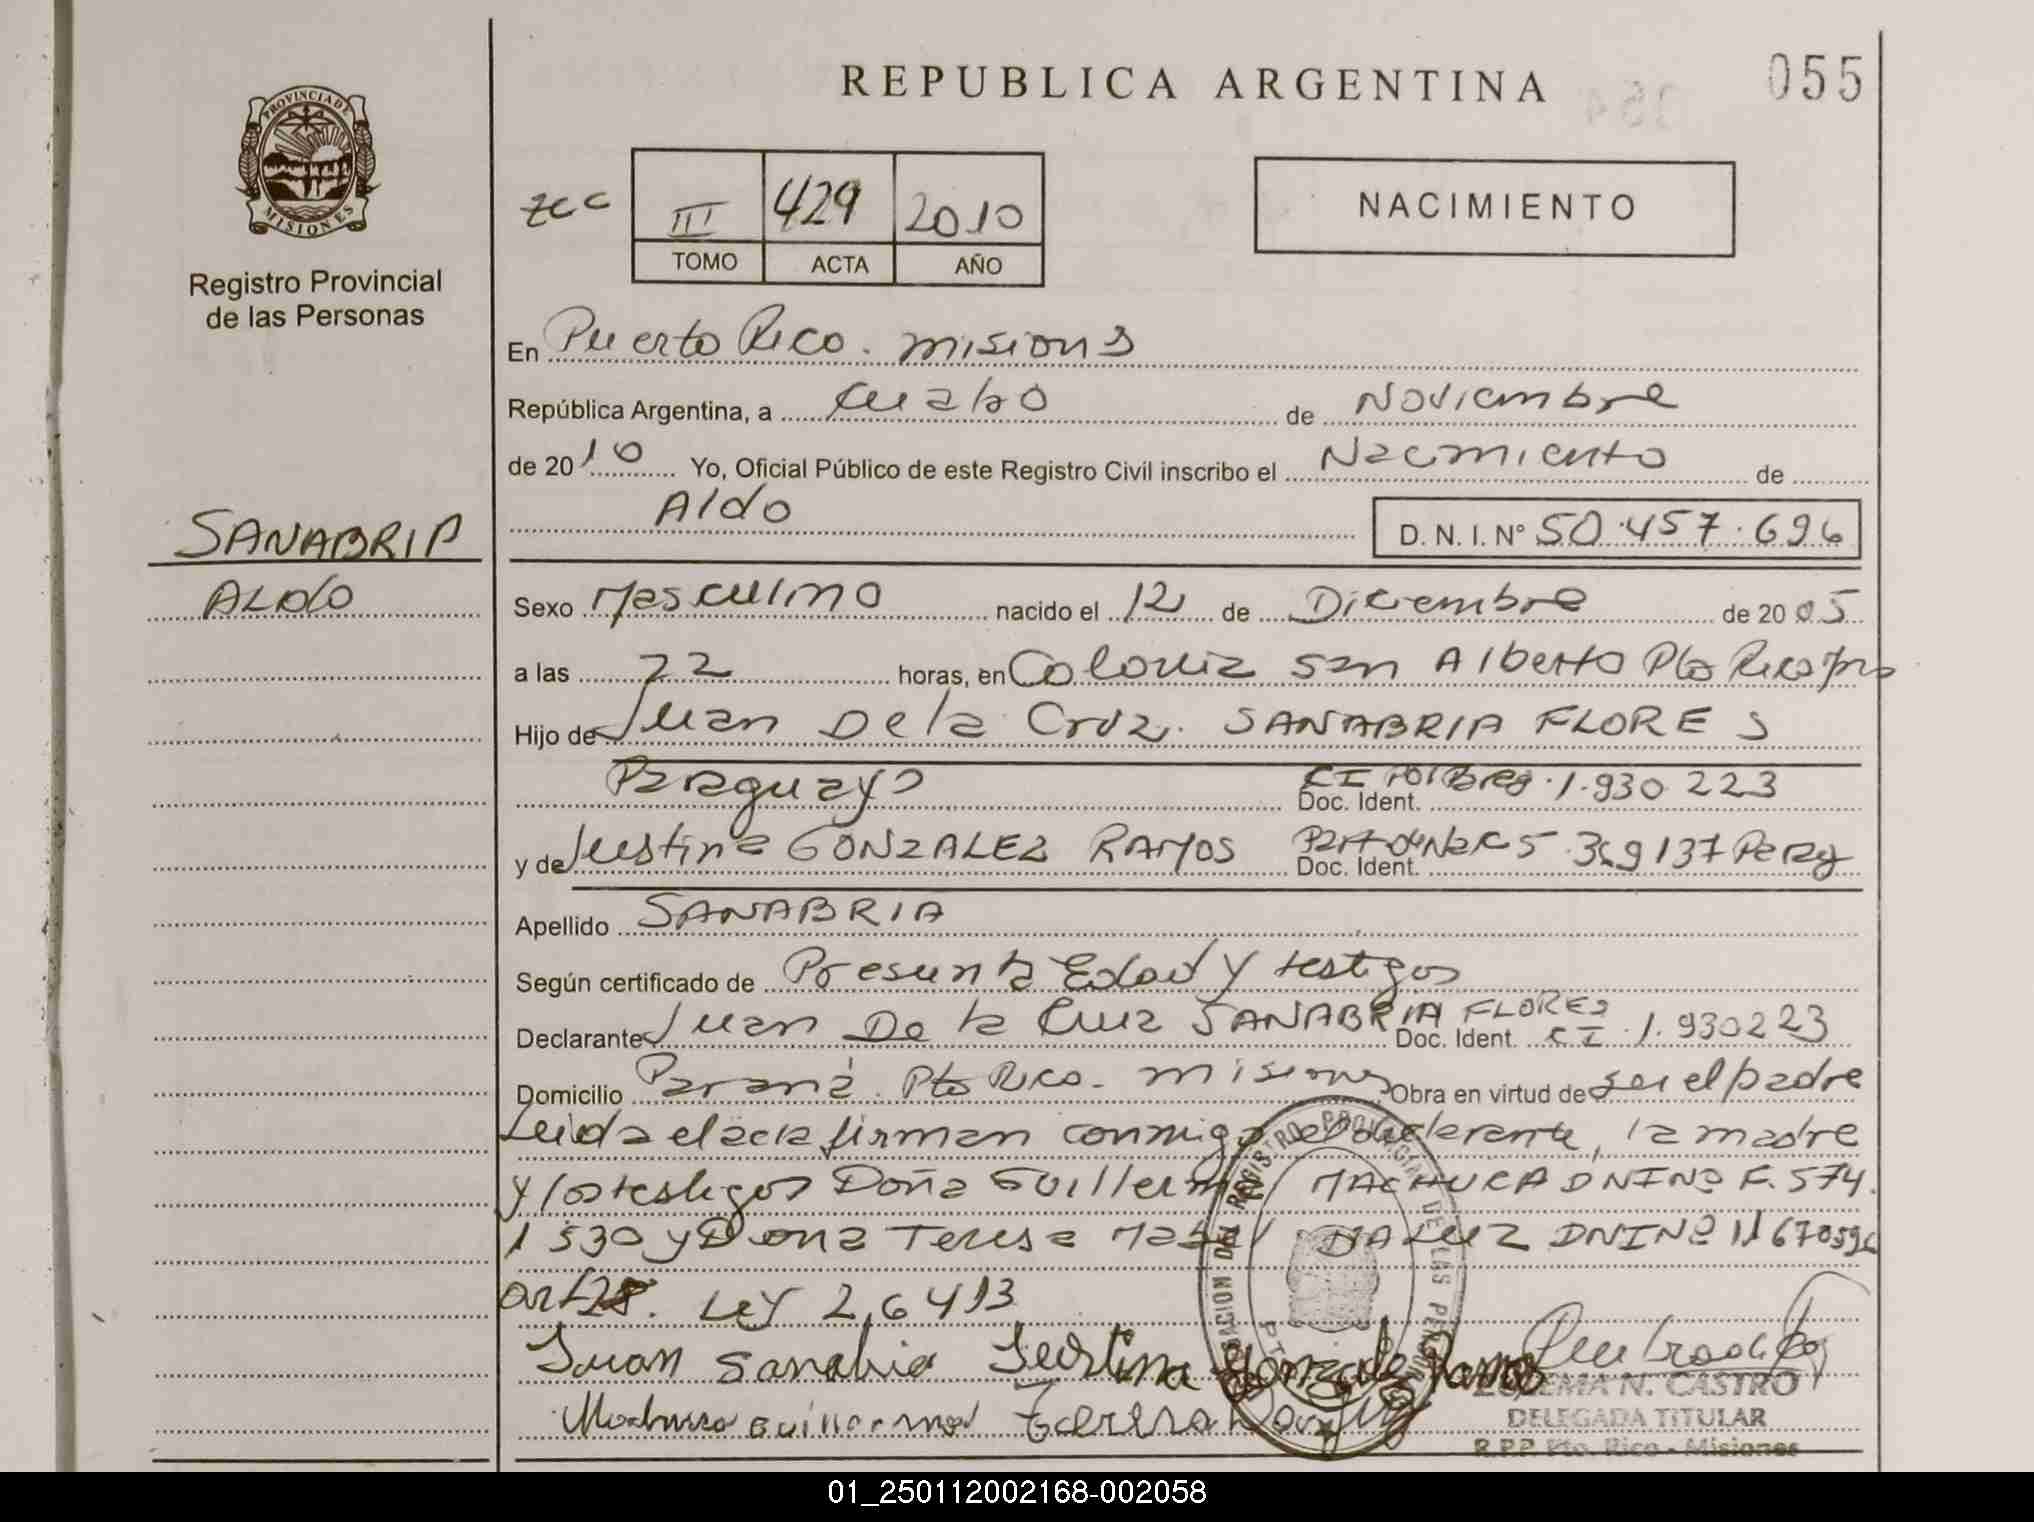 REPUBLICA ARGENTINA
055
PROVINCIA DE
MISIONES
Registro Provincial
de las Personas
III 429 2010
TOMO ACTA AÑO
NACIMIENTO
En Puerto Rico. misiones
República Argentina, a cuatro de Noviembre
de 2010 Yo, Oficial Público de este Registro Civil inscribo el Nacimiento de
Aldo
D. N. I. Nº 50.457.696
SANABRIA
ALDO
Sexo Masculino nacido el 12 de Diciembre de 2005
a las 22 horas, en Colonia San Alberto Pto Rico Mns
Hijo de Juan De la Cruz. SANABRIA FLORES
Paraguayo CI Doc. Ident. 1.930 223
y de Justina GONZALEZ RAMOS Part de Nac Doc. Ident. 5.369137 Parag
Apellido SANABRIA
Según certificado de Presunta Edad y testigos
Declarante Juan De la Cruz SANABRIA FLORES Doc. Ident. CI 1.930223
Domicilio Paraná. Pto Rico. misiones Obra en virtud de ser el padre
Leida el acta firman conmigo el declarante, la madre
y los testigos Doña Guillerma MACHUCA DNI Nº F. 574.
1530 y Doña Teresa DNI Nº 11670596
art 28. LEY 26413
Juan Sanabria Justina Gonzalez Ramos
Machuca Guillerma
ZULEMA N. CASTRO
DELEGADA TITULAR
R.P.P. Pto. Rico - Misiones
01_250112002168-002058